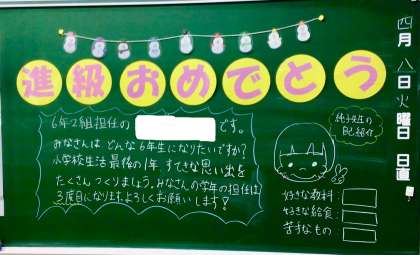 進級おめでとう
四月八日火曜日 日直
6年2組担任の です。
みなさんは どんな6年生になりたいですか?
小学校生活 最後の1年、すてきな思い出を
たくさん つくりましょう。みなさんの学年の担任は
3度目になります。よろしくお願いします!
先生の
自己紹介
好きな教科:
好きな給食:
苦手なもの: